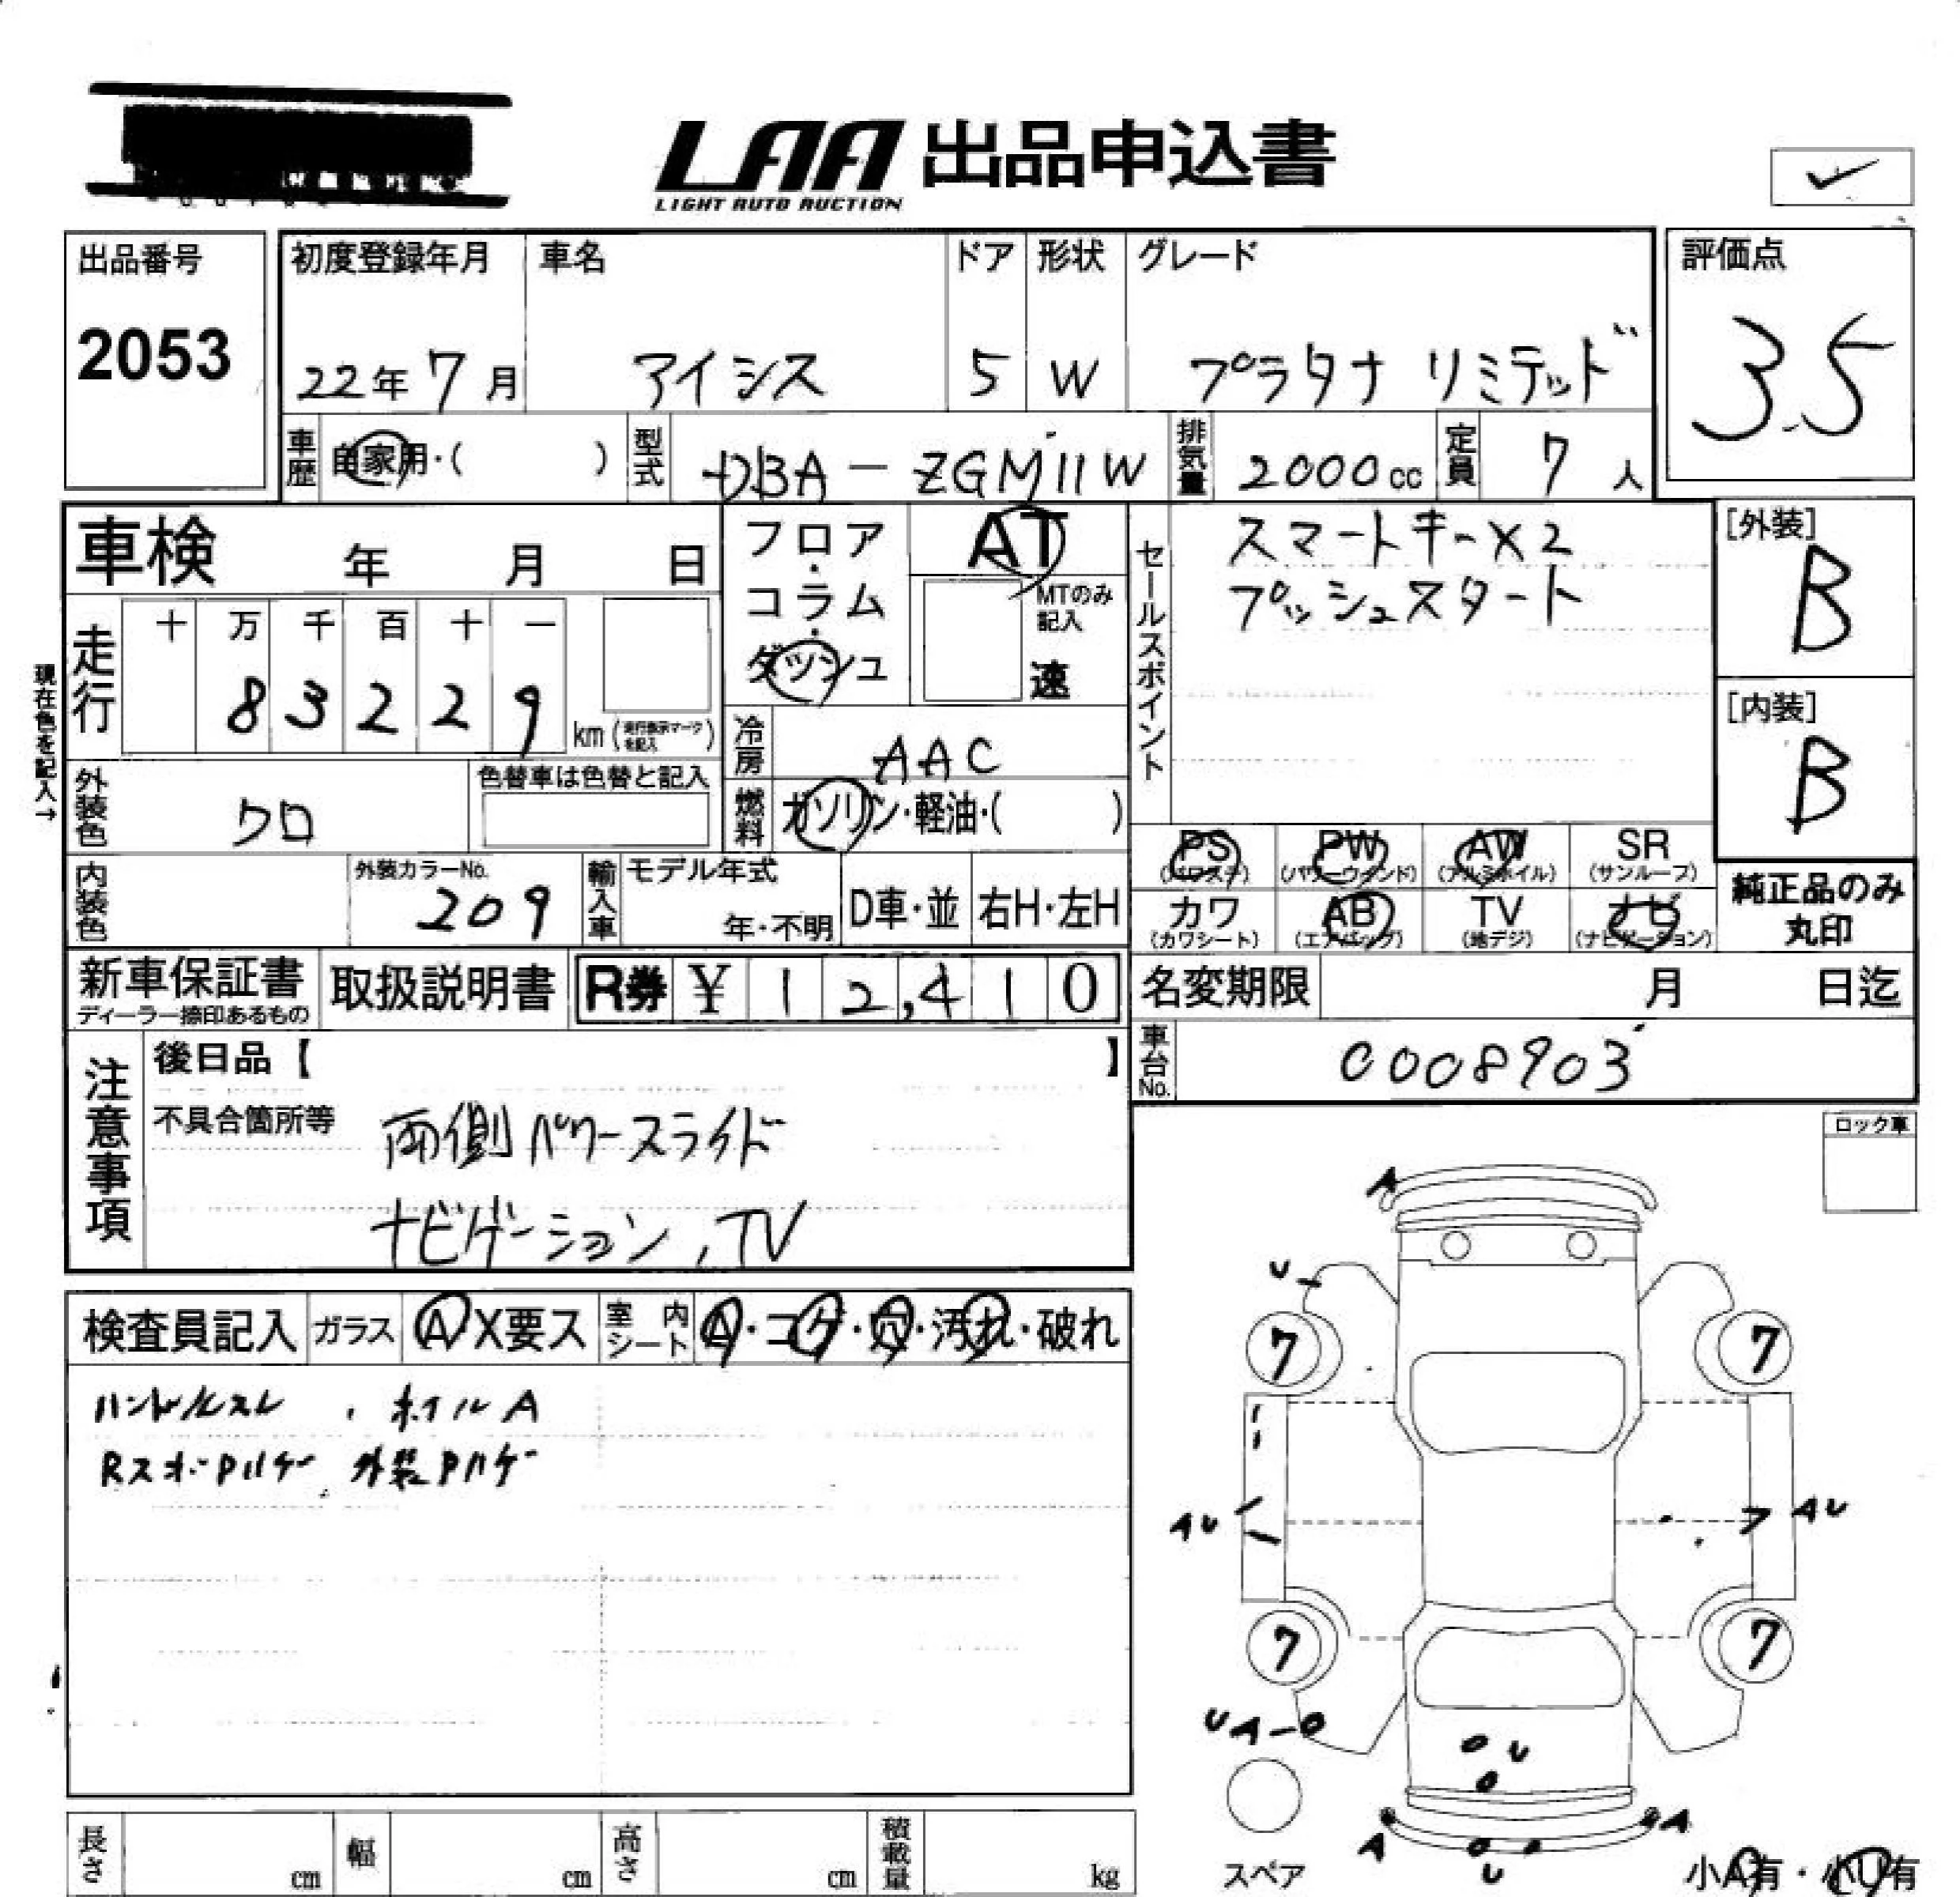 LAA 出品申込書
LIGHT AUTO AUCTION
出品番号
2053
初度登録年月
22年 7月
車名
アイシス
ドア
5
形状
W
グレード
プラタナ リミテッド
評価点
3.5
車歴
自家用・( )
型式
DBA－ZGM11W
排気量
2000cc
定員
7人
車検 年 月 日
フロア・コラム・ダッシュ
AT
MTのみ記入
速
セールスポイント
スマートキー×2
プッシュスタート
[外装]
B
[内装]
B
現在色を記入→
走行
十 万 千 百 十 一
8 3 2 2 9
km(走行表示マークを記入)
冷房
AAC
外装色
クロ
色替車は色替と記入
燃料
ガソリン・軽油・( )
PS PW AW SR
(パワステ) (パワーウインド) (アルミホイル) (サンルーフ)
カワ AB TV ナビ
(カワシート) (エアバッグ) (地デジ) (ナビゲーション)
純正品のみ
丸印
内装色
外装カラーNo.
209
輸入車
モデル年式
年・不明
D車・並
右H・左H
新車保証書
ディーラー捺印あるもの
取扱説明書
R券 ¥ 1 2,4 1 0
名変期限 月 日迄
車台No.
0008903
注意事項
後日品【 】
不具合箇所等
両側パワースライド
ナビゲーション, TV
ロック車
検査員記入
ガラス
A X要ス
室内シート
A・コゲ・穴・汚れ・破れ
ハンドルスレ , ホイルA
Rスポーpハゲ 外装pハゲ
A
U
7 7
AU AU
7 7
U A
U
A A
U
スペア
小A有・小U有
長さ cm
幅 cm
高さ cm
積載量 kg